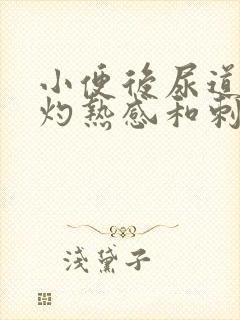 小便後尿道
灼熱感和刺
淺黛子